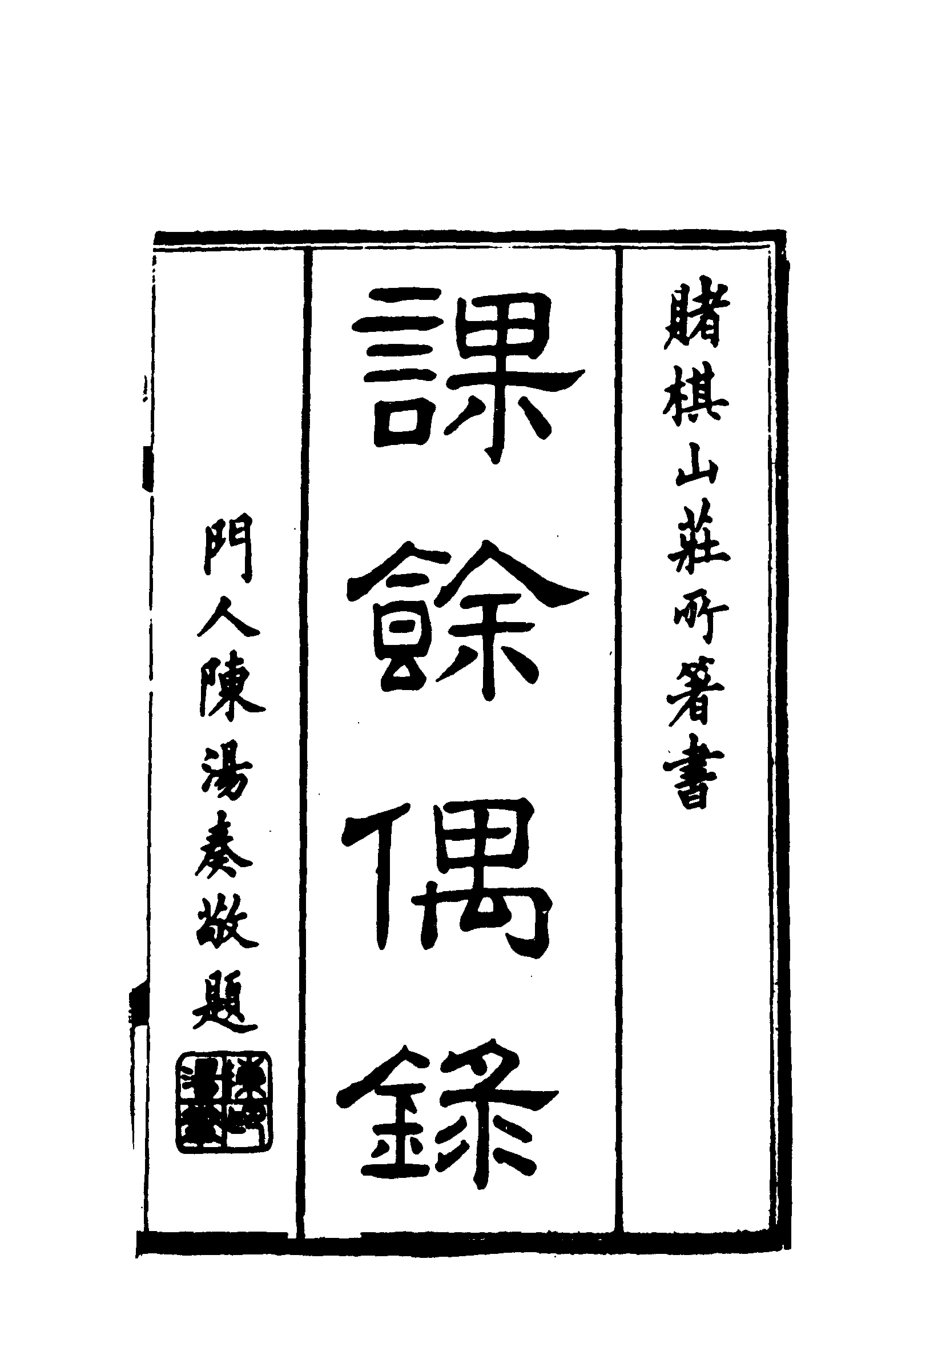 賭棋山莊所箸書
課餘偶錄
門人陳湯奏敬題